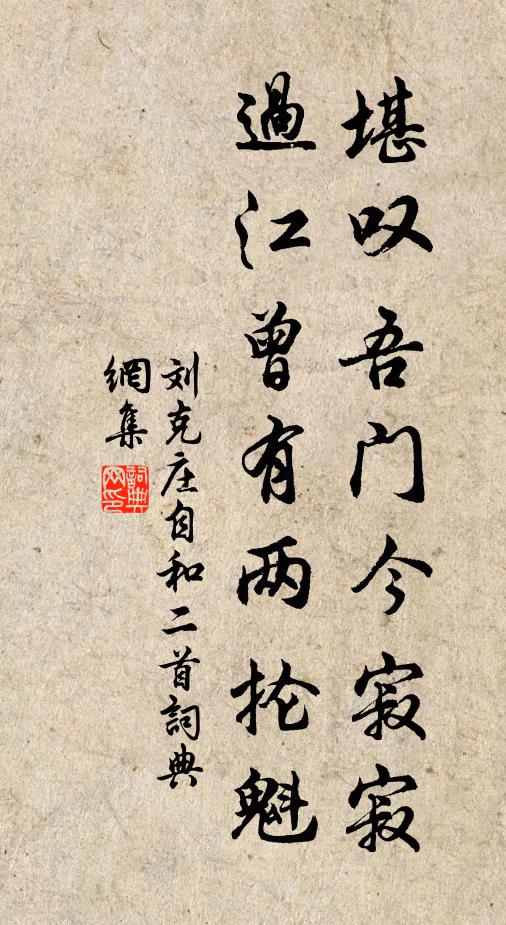 堪叹吾门今寂寂
過江曾有两抡魁
刘克庄自和二首詞典
網集
詞典
网印